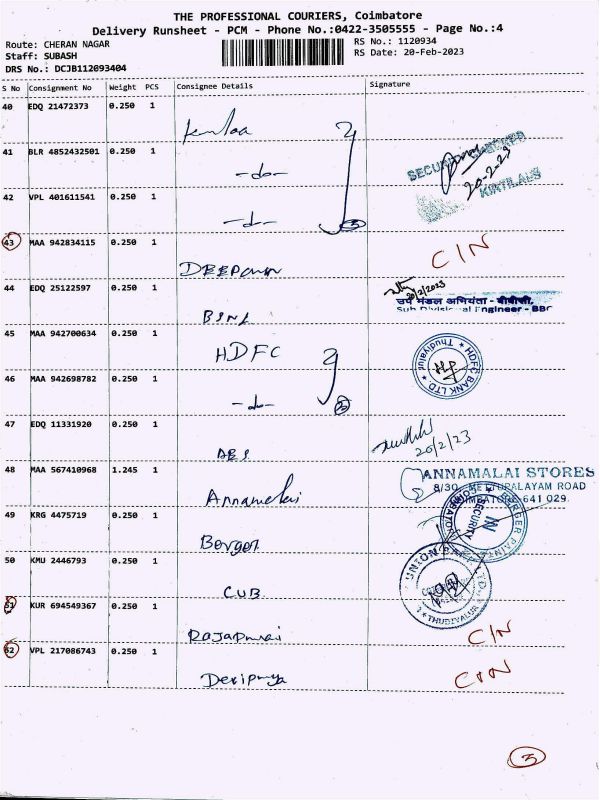 THE PROFESSIONAL COURIERS, Coimbatore
Delivery Runsheet - PCM - Phone No.:0422-3505555 - Page No.:4
Route: CHERAN NAGAR
RS No.: 1120934
Staff: SUBASH
RS Date: 20-Feb-2023
DRS No.: DCJB112093404
S No Consignment No Weight PCS Consignee Details Signature
40 EDQ 21472373 0.250 1
41 BLR 4852432501 0.250 1 -do-
SECURITY CHECKED
20-2-23
KIRTILALS
42 VPL 401611541 0.250 1 -do- 3
43 MAA 942834115 0.250 1 C/N
44 EDQ 25122597 0.250 1 BSNL
20/2/2023
उप मंडल अभियंता - बीबीसी,
Sub Divisional Engineer - BBC
45 MAA 942700634 0.250 1 HDFC
HDFC BANK LTD. * Thudiyalur *
46 MAA 942698782 0.250 1 -do- 2
47 EDQ 11331920 0.250 1
20/2/23
48 MAA 567410968 1.245 1 Annamalai
ANNAMALAI STORES
8/30, METTUPALAYAM ROAD
COIMBATORE-641 029.
49 KRG 4475719 0.250 1 Berger
BERGER PAINT
SECURITY
IN
50 KMU 2446793 0.250 1 CUB
UNION BANK LTD.
* THUDIYALUR *
51 KUR 694549367 0.250 1 C/N
52 VPL 217086743 0.250 1
3